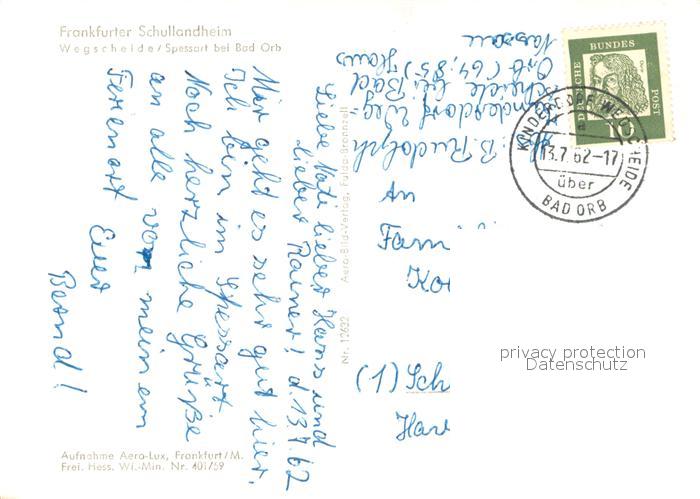 Frankfurter Schullandheim
Wegscheide/Spessart bei Bad Orb
Liebe Kati lieber Hans und
lieber Rainer! d. 13.7.62
Mir geht es sehr gut hier.
Ich bin im Spessart
Noch herzliche Grüße
an alle von meinem
Ferienort Euer
Bernd!
Aufnahme Aero-Lux, Frankfurt/M.
Frei. Hess. Wi.-Min. Nr. 401/59
Nr. 12632 Aero-Bild-Verlag, Fulda-Bronnzell
B. Rudolph
Kinderdorf Weg-
scheide bei Bad
Orb (64,85) Haus
Nassau
DEUTSCHE BUNDES POST
10
KINDERDORF WEGSCHEIDE
a
13.7.62-17
über
BAD ORB
An
Fam
(1) Sch
privacy protection
Datenschutz